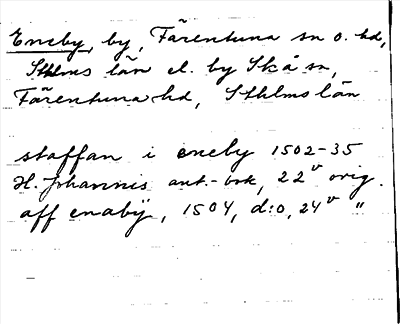 Eneby, by, Färentuna sn o. hd,
Sthlms län el. by Skå sn,
Färentuna hd, Sthlms län
staffan i eneby 1502-35
H. Johannis ant.-bok, 22v orig.
aff enabÿ, 1504, d:o, 24v "